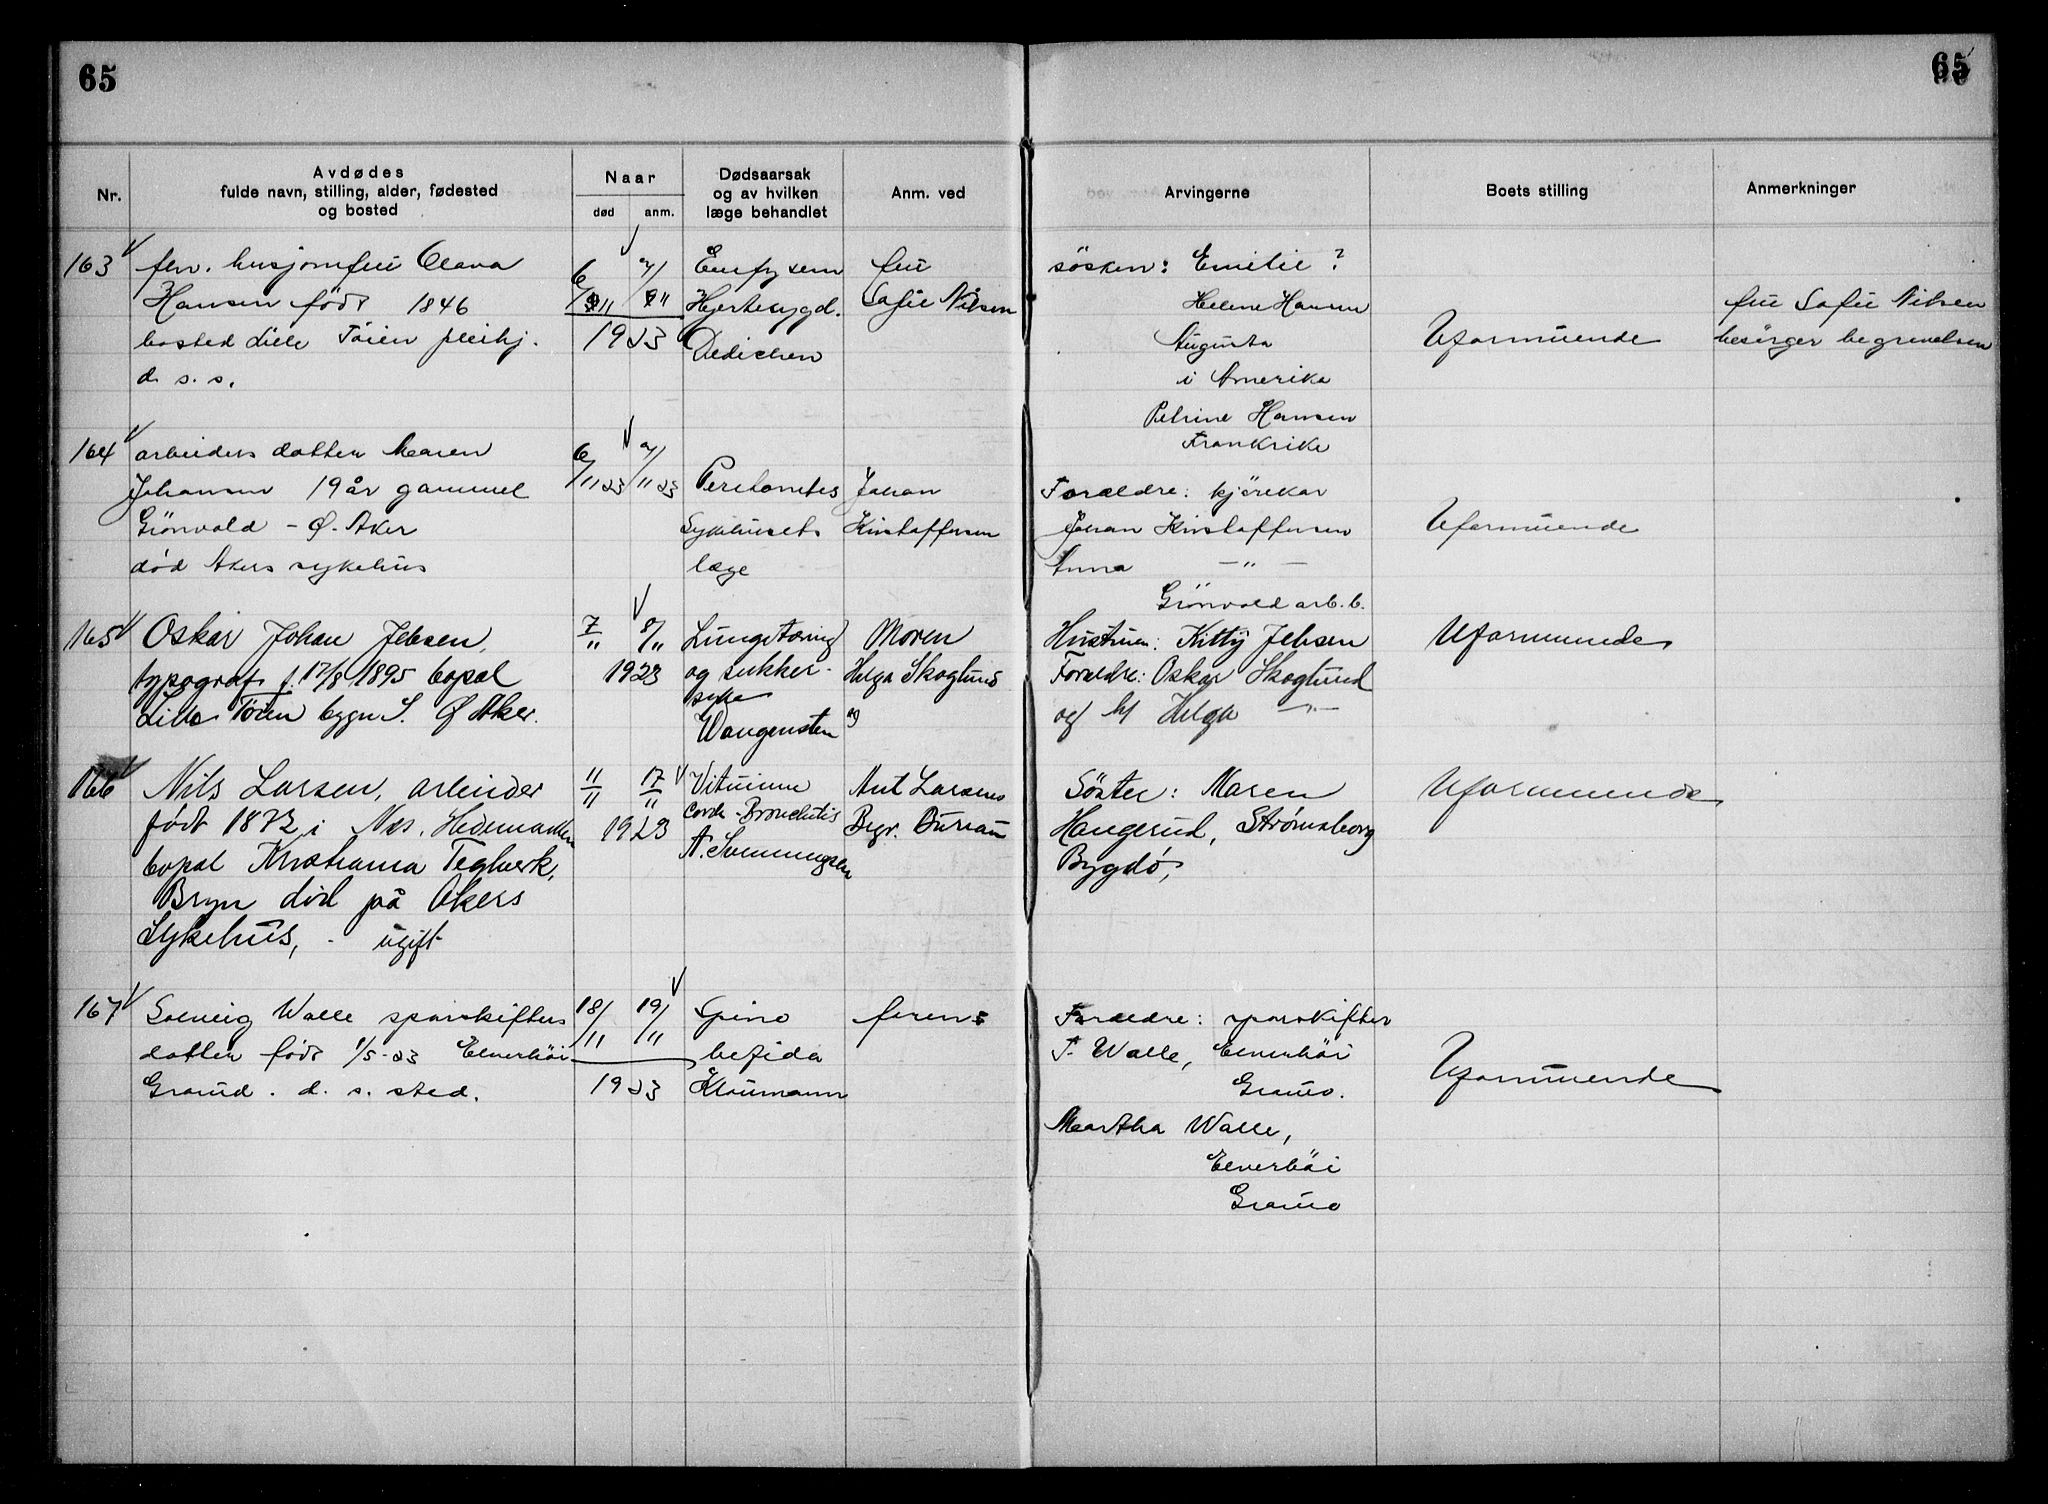 65
65
Nr.
Avdødes
fulde navn, stilling, alder, fødested
og bosted
Naar
død
anm.
Dødsaarsak
og av hvilken
læge behandlet
Anm. ved
Arvingerne
Boets stilling
Anmerkninger
163
fhv. husjomfru Olava
Hansen født 1846
bosted Lille Töien pleihj.
d. s. s.
6/11
1923
Emfysem
Hjertesygd.
Dedichen
fru
Sofie Nilsen
søsken: Emilie ?
Helene Hansen
Augusta
i Amerika
Petrine Hansen
Frankrike
Uformuende
fru Sofie Nilsen
besörger begravelsen
164
arbeiders datter Maren
Johansen 19 år gammel
Grönvold - Ø. Aker
død Akers sykehus
6/11 23
11 23
Peritonites
Sykehusets
læge
Johan
Kristoffersen
Foreldre: kjörekar
Johan Kristoffersen
Anna - " -
Grönvold arb. b.
Uformuende
165
Oskar Johan Jebsen,
typograf f. 17/8 1895 bopal
Lille Tøien bygn S. Ø Aker.
7/11
8/11
1923
Lungetæring
og sukker-
syke
Wangensten
Moren
Helga Skoglund
Hustruen: Kitty Jebsen
Foreldre: Oskar Skoglund
og Helga - " -
Uformuende
166
Nils Larsen, arbeider
født 1872 i Nes, Hedemarken
bopal Kristiania Teglverk,
Bryn død på Akers
Sykehus, - ugift
11/11
17/11
1923
Vitium
cordis - Bronchitis
A. Svenningsen
Ant Larsens
Begr. Bureau
Søster: Maren
Haugerud, Strømsborg
Bygdö,
Uformuende
167
Solveig Walle sporskifters
datter født 1/5-23 Elverhöi
Grorud. d. s. sted.
18/11
19/11
1923
Spina
befida
Klaumann
faren
Foreldre: sporskifter
T. Walle, Elverhöi
Grorud.
Martha Walle,
Elverhöi
Grorud
Uformuende